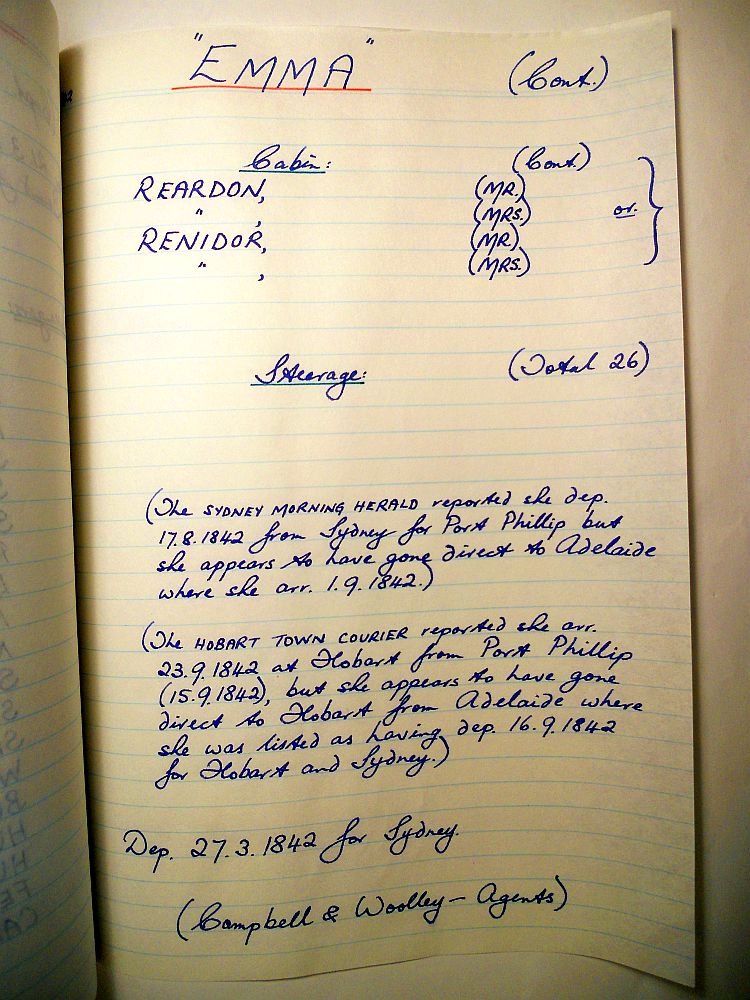 "EMMA" (Cont.)
Cabin: (Cont.)
REARDON, (MR.)
" , (MRS.) or. }
RENIDOR, (MR)
" , (MRS.)
Steerage: (Total 26)
(The SYDNEY MORNING HERALD reported she dep.
17.8.1842 from Sydney for Port Phillip but
she appears to have gone direct to Adelaide
where she arr. 1.9.1842.)
(The HOBART TOWN COURIER reported she arr.
23.9.1842 at Hobart from Port Phillip
(15.9.1842), but she appears to have gone
direct to Hobart from Adelaide where
she was listed as having dep. 16.9.1842
for Hobart and Sydney.)
Dep. 27.3.1842 for Sydney.
(Campbell & Woolley - Agents)